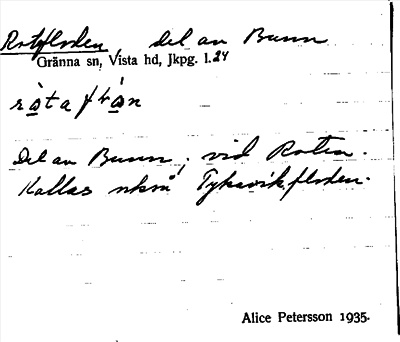 Rotfloden del av Bunn
Gränna sn, Vista hd, Jkpg. l. 24
Del av Bunn, vid Roten.
Kallas också Tyksvikfloden.
Alice Petersson 1935.